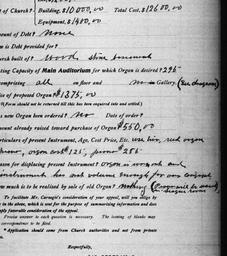 of Church? Building, $10000.00 Total Cost, $12600.00
Equipment, $1400.00
mount of Debt? None
is Debt provided for?
urch built of? Wood stone basement
ating Capacity of Main Auditorium for which Organ is desired? 295
comprising all on floor and in Gallery. (See diagram)
rice of proposed Organ? $1375.00
(Form should not be returned till this has been enquired into and settled)
s new Organ been ordered? No Date of order?
mount already raised toward purchase of Organ $550.00
articulars of present Instrument, Age, Cost Price, Etc. use him reed organ
piano, organ cost $125, piano $255
eason for displacing present Instrument? Organ is worn out and
instrument has not volume enough for our
ow much is to be realized by sale of old Organ? Nothing (Piano will be used in
To facilitate Mr. Carnegie's consideration of your appeal, will you oblige by
in the above, which is sent for the purpose of summarising information and
apply favorable consideration of the appeal.
Precise answer to each question is necessary. The issuing of blanks may
correspondence to be filed.
Application should come from Church authorities and not from private
Respectfully,